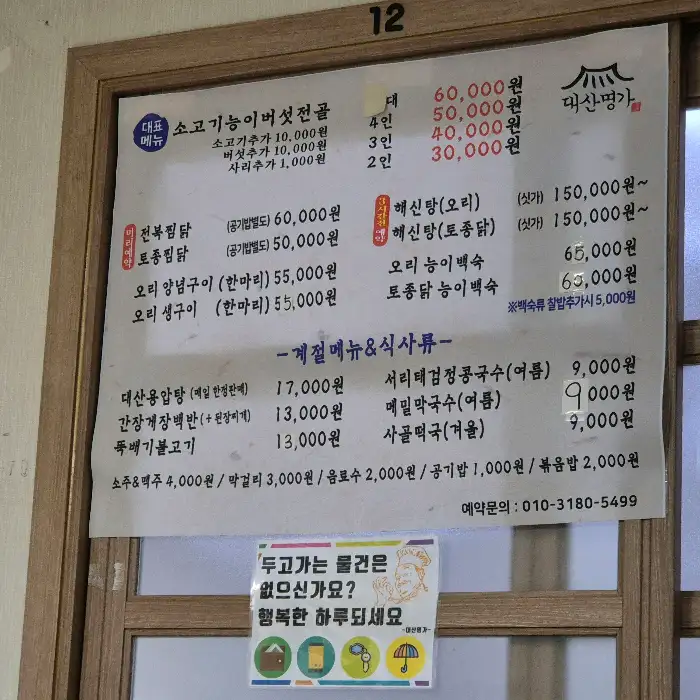 12
대표
메뉴
소고기능이버섯전골
소고기추가 10,000원
버섯추가 10,000원
사리추가 1,000원
대 60,000원
4인 50,000원
3인 40,000원
2인 30,000원
대산명가
미리예약
전복찜닭 (공기밥별도) 60,000원
토종찜닭 (공기밥별도) 50,000원
오리 양념구이 (한마리) 55,000원
오리 생구이 (한마리) 55,000원
3시간전예약
해신탕(오리) (싯가) 150,000원~
해신탕(토종닭) (싯가) 150,000원~
오리 능이백숙 65,000원
토종닭 능이백숙 65,000원
※백숙류 찰밥추가시 5,000원
-계절메뉴&식사류-
대산용압탕 (매일 한정판매) 17,000원
간장게장백반(+된장찌개) 13,000원
뚝배기불고기 13,000원
서리태검정콩국수(여름) 9,000원
메밀막국수(여름) 9,000원
사골떡국(겨울) 9,000원
소주&맥주 4,000원 / 막걸리 3,000원 / 음료수 2,000원 / 공기밥 1,000원 / 볶음밥 2,000원
예약문의 : 010-3180-5499
두고가는 물건은
없으신가요?
행복한 하루되세요
-대산명가-